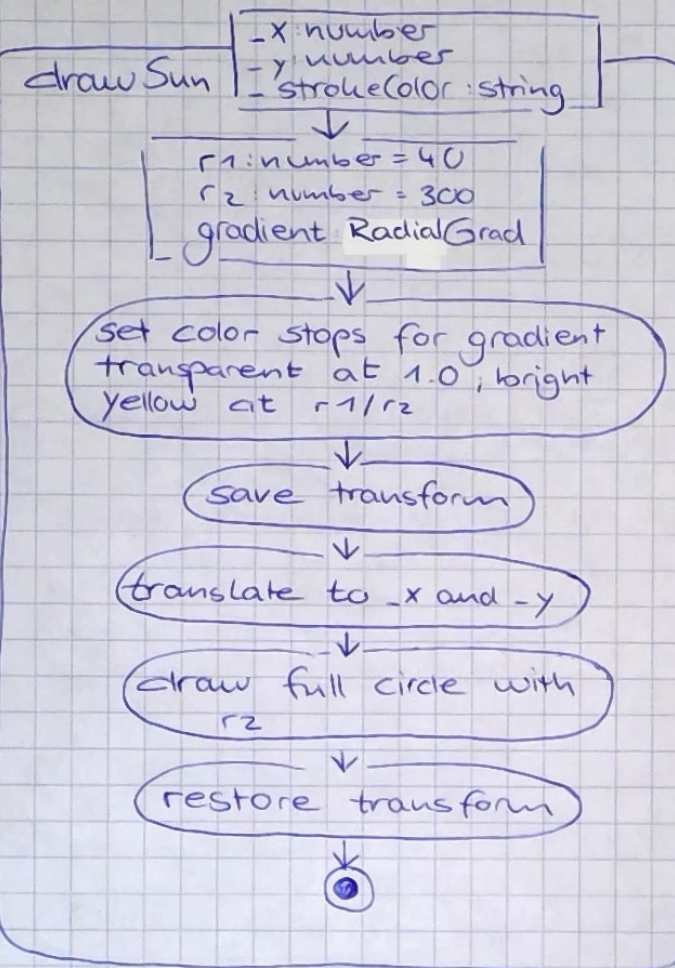 drawSun
_x:number
_y:number
_strokeColor:string
r1:number = 40
r2:number = 300
gradient: RadialGrad
set color stops for gradient
transparent at 1.0, bright
yellow at r1/r2
save transform
translate to _x and _y
draw full circle with
r2
restore transform